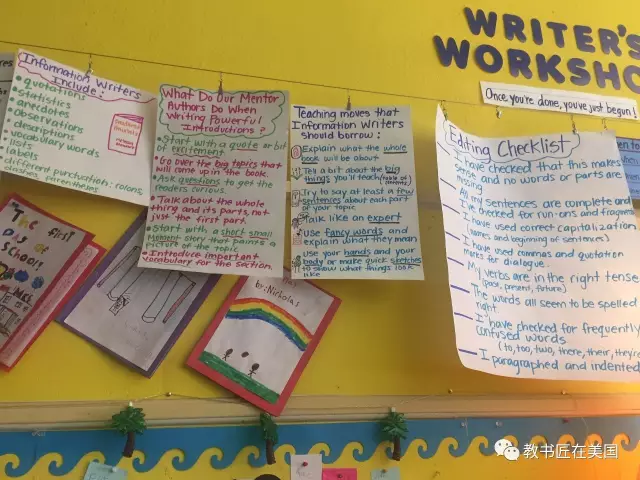 WRITER'S
WORKSHO
Once you're done, you've just begun!
Information Writers
Include:
quotations
statistics
anecdotes
observations
descriptions
vocabulary words
lists
labels
different punctuation: colons,
What Do Our Mentor
Authors Do When
Writing Powerful
Introductions?
Start with a quote or bit
of excitement
Go over the big topics that
will come up in the book.
Ask questions to get the
readers curious
Talk about the whole
thing and its parts, not
just the first part.
Start with a short small
moment story that paints a
picture of the topic
Introduce important
vocabulary for the section.
Teaching moves that
Information Writers
Should borrow:
Explain what the whole
book will be about
Tell a bit about the big
things you'll teach (table of
contents)
Try to say at least a few
sentences about each part
of your topic
Talk like an expert
Use fancy words and
explain what they mean
Use your hands and your
body or make quick sketches
to show what things look
like
Editing Checklist
I have checked that this makes
sense and no words or parts are
missing
All my sentences are complete and
I've checked for run-ons and fragments
I have used correct capitalization
(names and beginning of sentences)
I have used commas and quotation
marks for dialogue.
My verbs are in the right tense
(past, present, future)
The words all seem to be spelled
right
I have checked for frequently
confused words
(to, too, two, there, their, they're
I paragraphed and indented
The first
Day of
School
by: Nickolas
教书匠在美国